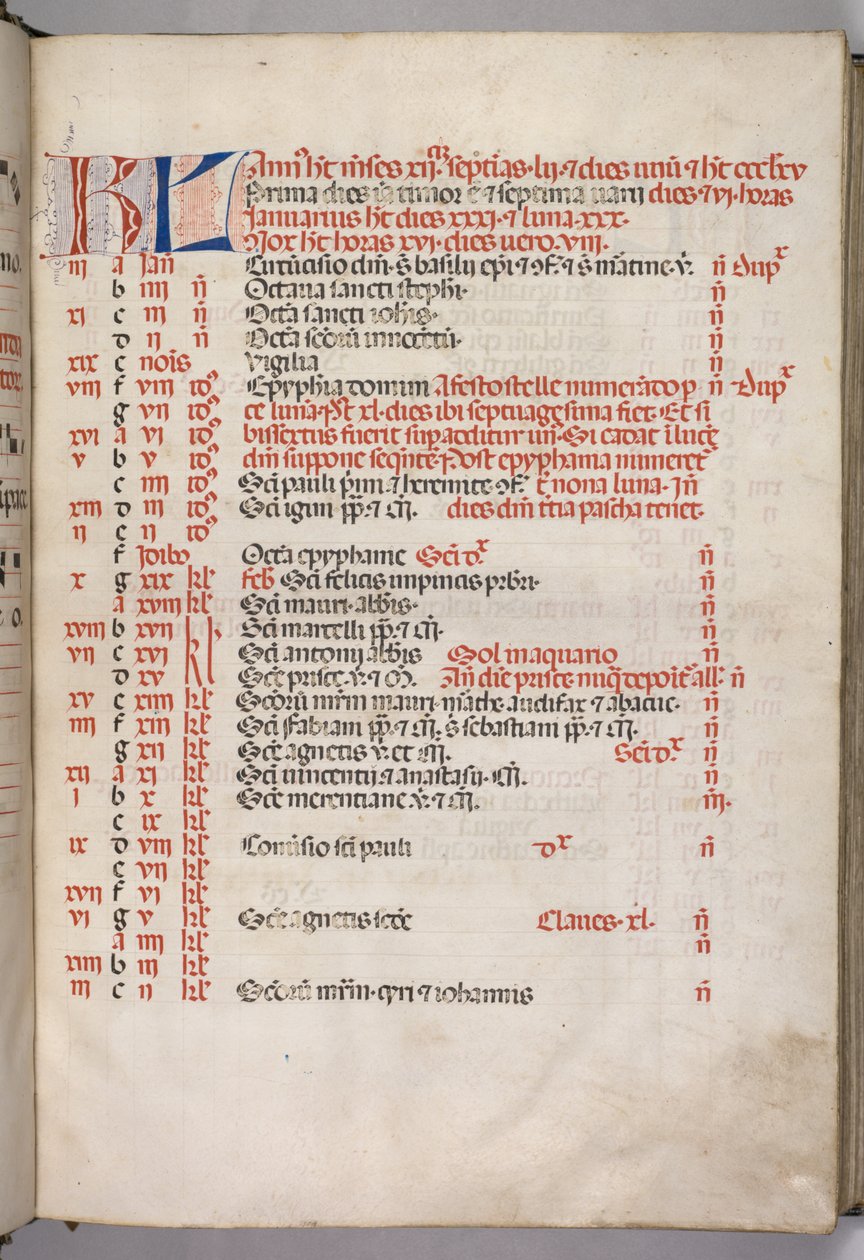 KL Ann9 ht m̄ses xij. septīas. lij. ⁊ dies unū ⁊ ht ccclxv
Prima dies timor ē ⁊ septima uani dies. ⁊ vi. horas
Januarius ht dies xxxi. ⁊ luna. xxx.
Nox ht horas xvi. dies uero. viii.
iij a Jan̄ Circūcisio dn̄i. s̄ basilij ep̄i. ⁊ ꝯf. ⁊ s̄ martine. v̄. n̄ dupx
b iiij n̄ Octaua sancti steph̄i. n̄
xi c iij n̄ Octā sancti ioh̄is. n̄
d ij n̄ Octā sc̄oꝝ innocētū. n̄
xix e nois Vigilia n̄
viij f viij id9 Epyph̄ia domini A festo stelle numerādo p n̄ dupx
g vij id9 te lunā. pꝰt xl. dies ibi septuagesima fiet. Et si
xvi a vi id9 bissextus fuerit sup additur un9. Si cadat ī luce
v b v id9 dn̄i suppone seqn̄te. Post epyphania numeret
c iiij id9 Sc̄i pauli p̄mi ⁊ heremite ꝯf. nona luna. Jn̄
xiij d iij id9 Sc̄i igini pp̄. ⁊ m̄. dies dn̄i t̄tia pascha tenet.
ij e ij id9
f Jdibꝰ Octā epyphanie Sc̄i dx n̄
x g xix kl feb Sc̄i felicis inpincis prb̄ri. n̄
a xviij kl Sc̄i mauri. abb̄is. n̄
xviij b xvij kl Sc̄i marcelli pp̄. ⁊ m̄. n̄
vij c xvi kl Sc̄i antonij abb̄is Sol in aquario n̄
d xv Sc̄e prisce. v̄. ⁊ m̄. n̄
xv e xiiij kl Sc̄oꝝ mr̄m mauri. mathe. audifax ⁊ abacuc. n̄
iiij f xiij kl Sc̄i fabiani pp̄. ⁊ m̄. s̄ sebastiani pp̄. ⁊ m̄. n̄
g xij kl Sc̄e agnetis v̄. et m̄. Sc̄i dx n̄
xij a xi kl Sc̄i uincentij ⁊ anastasij. m̄. n̄
i b x kl Sc̄e merentiane. v̄. ⁊ m̄. iij.
c ix kl
ix d viij kl Conūsio sc̄i pauli dx n̄
e vij kl
xvij f vi kl
vi g v kl Sc̄e agnetis sc̄de Claues. xl. n̄
a iiij kl n̄
xiiij b iij kl
iij c ij kl Sc̄oꝝ mr̄m. cyri ⁊ iohannis n̄